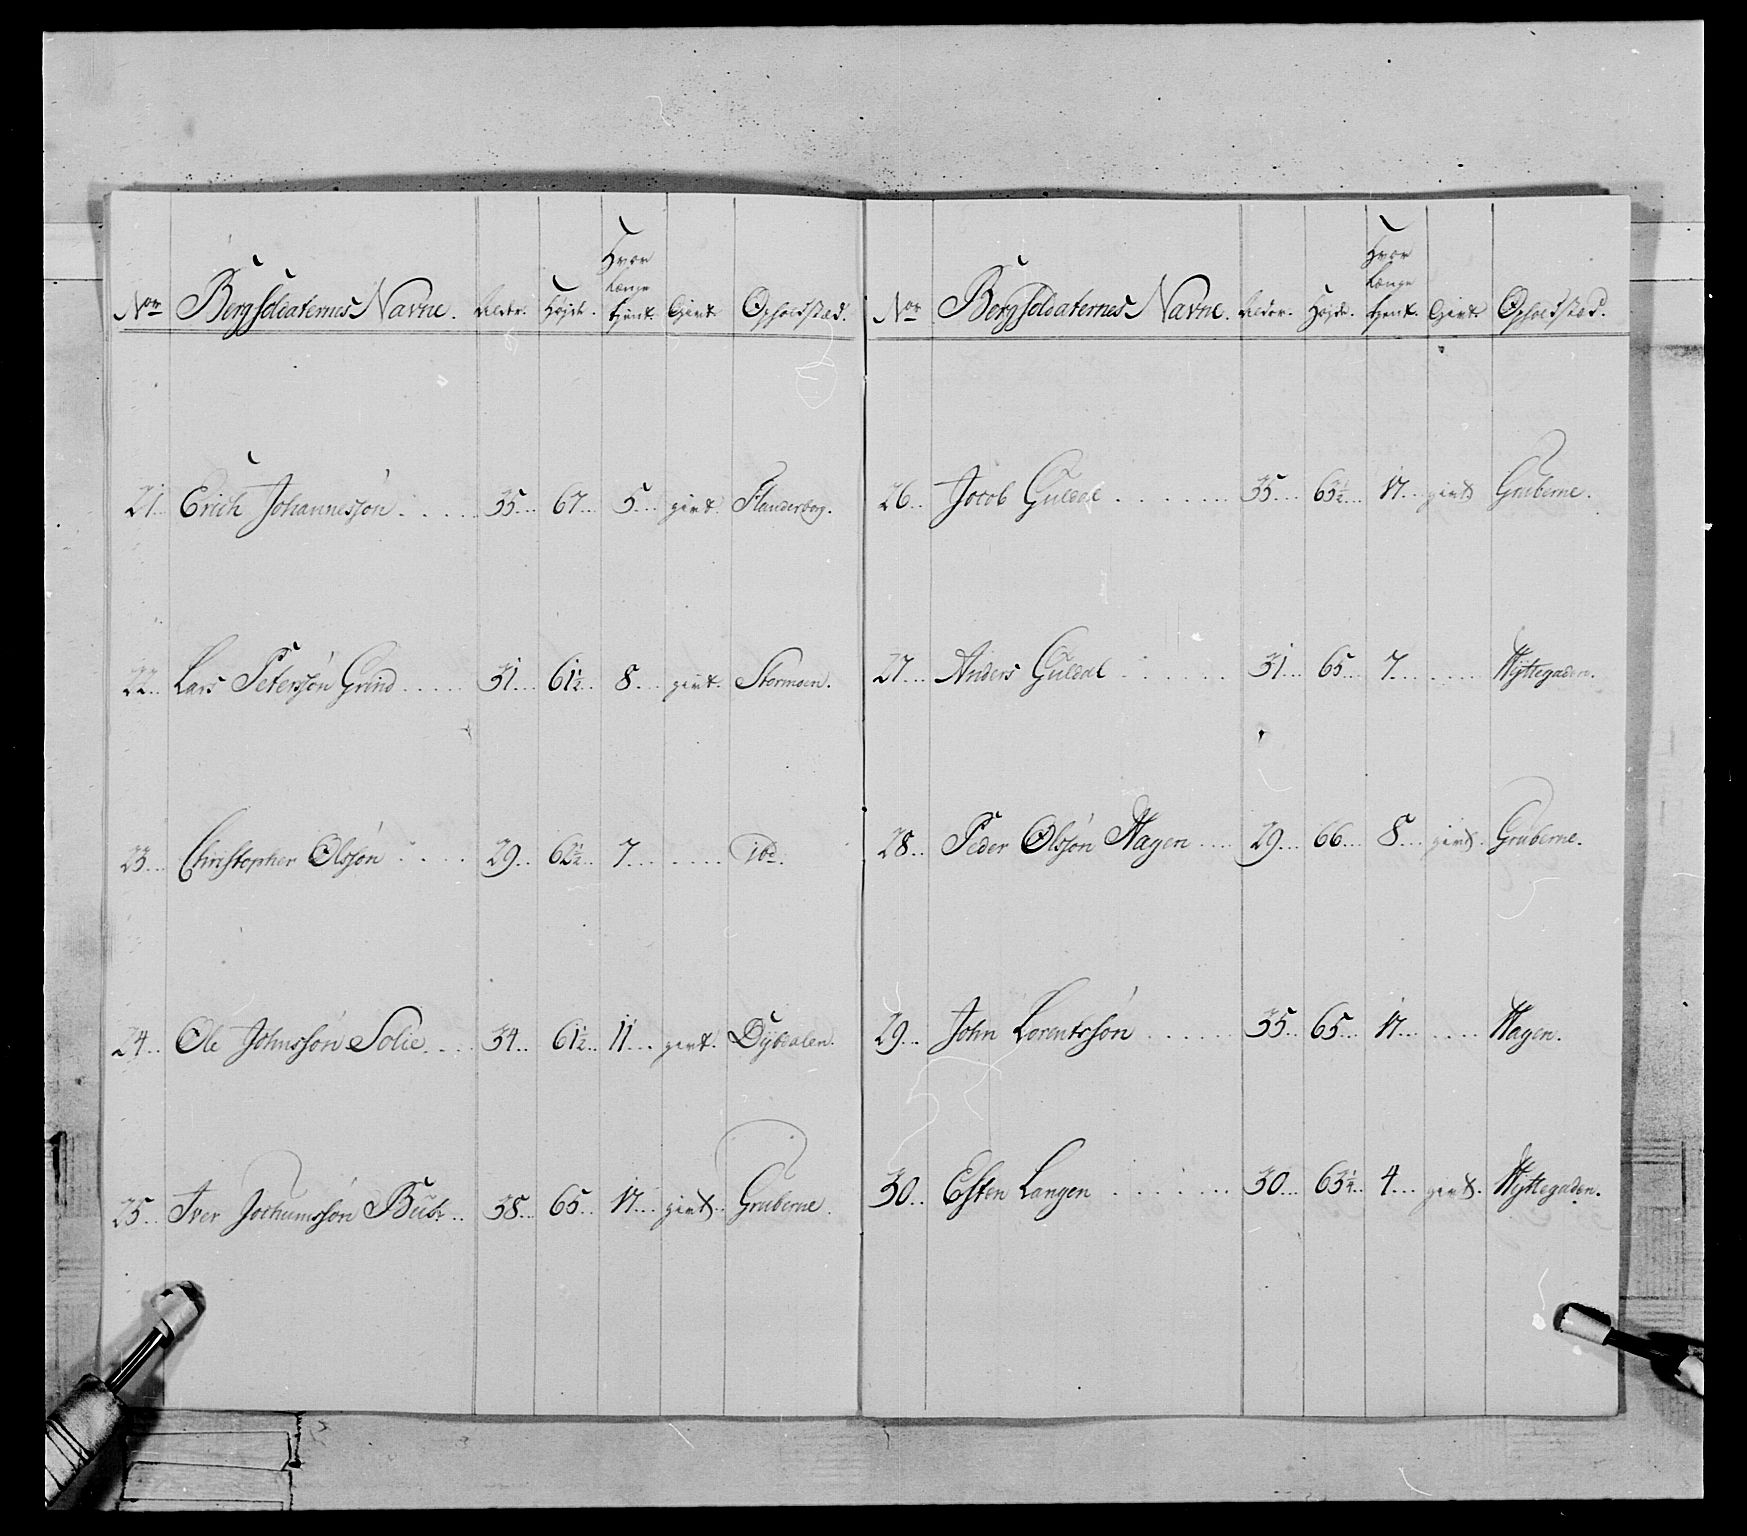 Nor Bergsoldaternes Navne. Alder. Højde. Hvor Længe tjent. Givt. Opholdsted.
21... Erich Johannessøn..... 35... 67... 5... givt. Flanderborg.
22... Lars Peterssøn Grind..... 31... 61½.. 8... givt. Stormoen.
23... Christopher Olssøn..... 29... 62½.. 7... ..... ibd.
24... Ole Johnssøn Solie.... 34.. 61½.. 11... givt. Dÿbdalen.
25... Iver Jochumssøn Bub... 38... 65... 17... givt.. Gruberne.
Nor Bergsoldaternes Navne. Alder. Højde. Hvor Længe tjent. Givt. Opholdsted.
26... Jacob Guldal....... 35... 63½... 17... givt Gruberne.
27... Anders Guldal....... 31... 65... 7... ..... Hÿttegaden.
28... Peder Olssøn Hagen.... 29... 66... 8... givt. Gruberne.
29... John Lorentssøn...... 35... 65... 17... ..... Hagen.
30... Esten Langen....... 30... 63½.. 4... givt. Hÿttegaden.